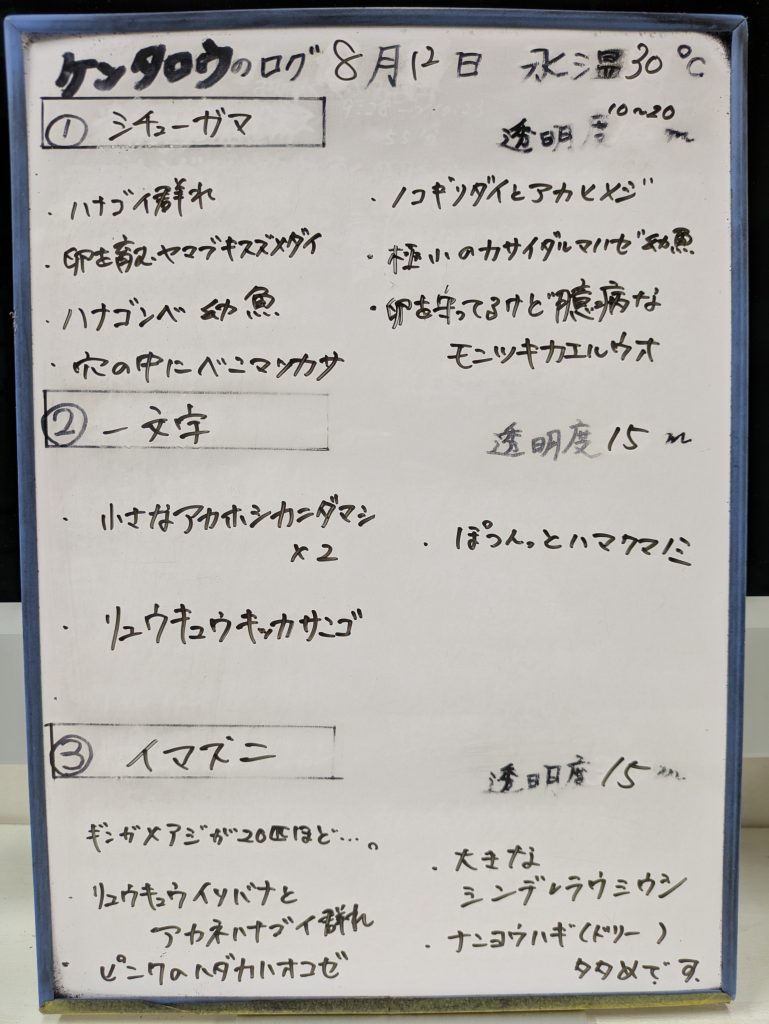 ケンタロウのログ 8月12日 水温30℃
① シチューガマ
透明度 10〜20 m
・ハナゴイ群れ
・卵を育むヤマブキスズメダイ
・ハナゴンベ 幼魚
・穴の中にベニマツカサ
・ノコギリダイとアカヒメジ
・極小のカサイダルマハゼ幼魚
・卵を守ってるけど臆病な
モンツキカエルウオ
② 一文字
透明度 15 m
・小さなアカホシカニダマシ
×2
・リュウキュウキッカサンゴ
・ぽつんっとハマクマノミ
③ イマズニ
透明度 15 m
ギンガメアジが20匹ほど…。
・リュウキュウイソバナと
アカネハナゴイ群れ
・ピンクのハダカハオコゼ
・大きな
シンデレラウミウシ
・ナンヨウハギ(ドリー)
タタめです